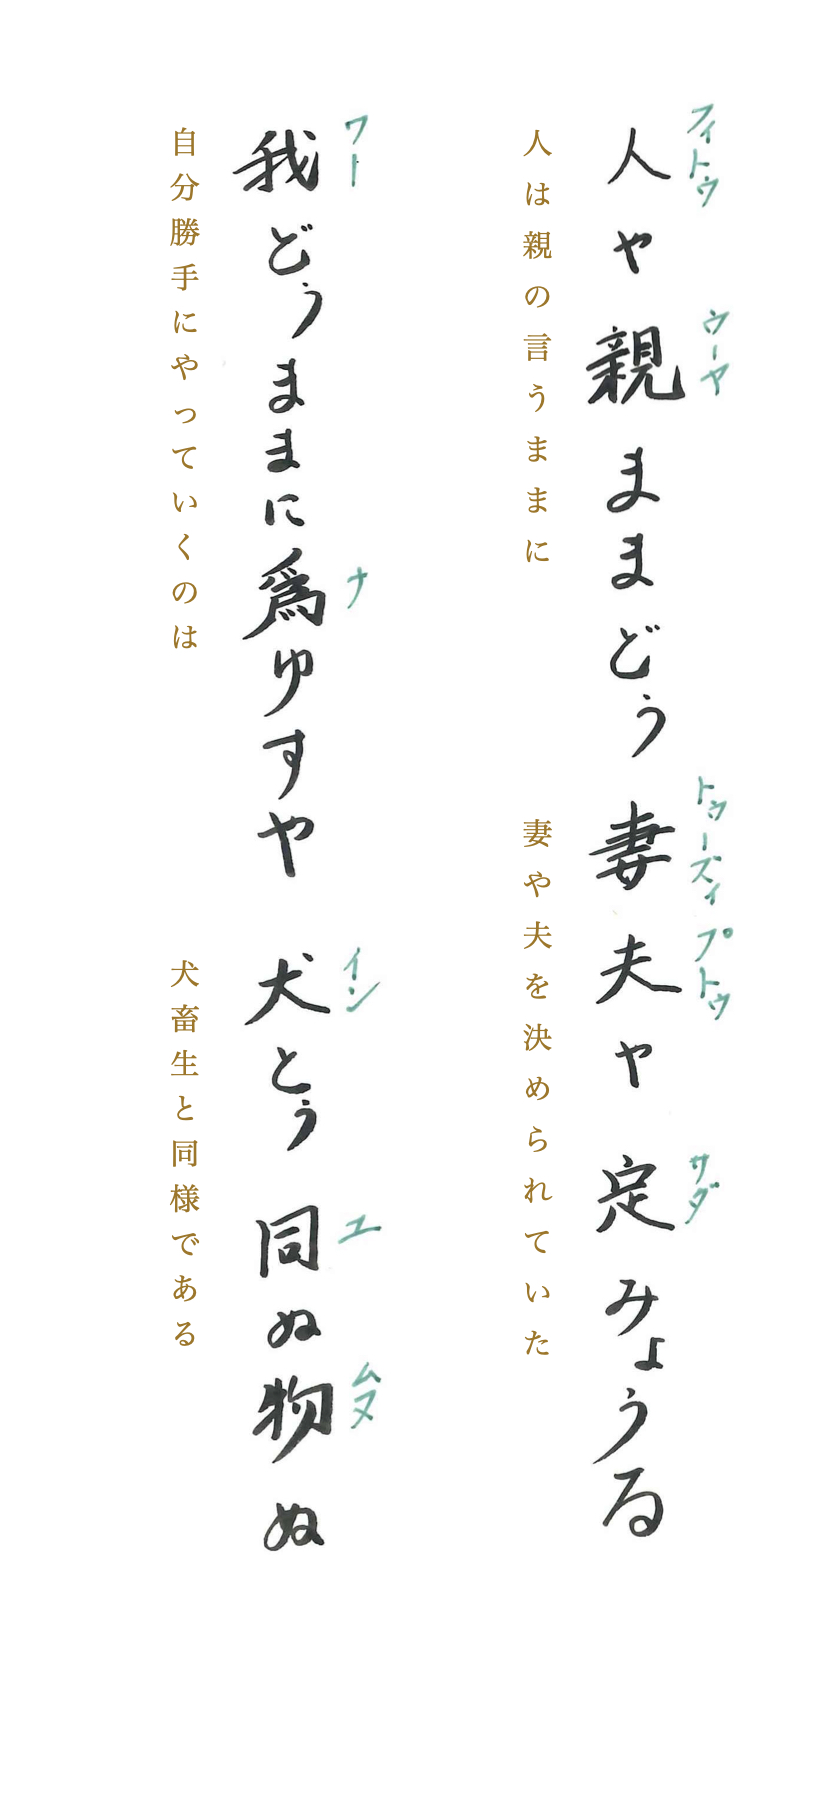 フィトゥ ウーヤ トゥーズィ プトゥ サダ
人や親ままどぅ妻夫や定みょうる
人は親の言うままに 妻や夫を決められていた
ワー ナ イン エ ムヌ
我どぅままに為ゆすや犬とぅ同ぬ物ぬ
自分勝手にやっていくのは 犬畜生と同様である